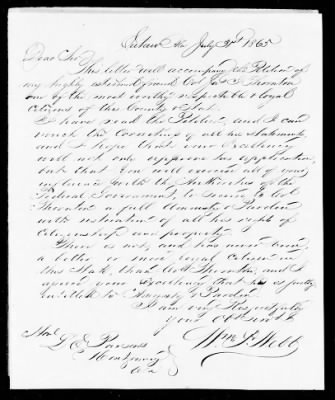 Eutaw Ala July 31st 1865
Dear Sir
This letter will accompany the Petition of
my highly esteemed friend Col Jas I. Thornton
one by the most worthy respectable & loyal
citizens of this County & State.
I have read the Petition, and I can
vouch the correctness of all his statements
and I hope that your Excellency
will not only approve his application,
but that you will exercise all of your
influence with the Authorities of the
Federal Government, to secure to Col
Thornton a full Amnesty & Pardon
with restoration of all his rights of
citizenship and property.
There is not, and has never been
a better or more loyal citizen in
this State, than Col Thornton, and I
assure your Excellency that he is justly
entitled to Amnesty & Pardon.
I am very Respectfully
your Obt Servt
Wm P. Webb
Hon L E Parsons
Montgomery
Ala